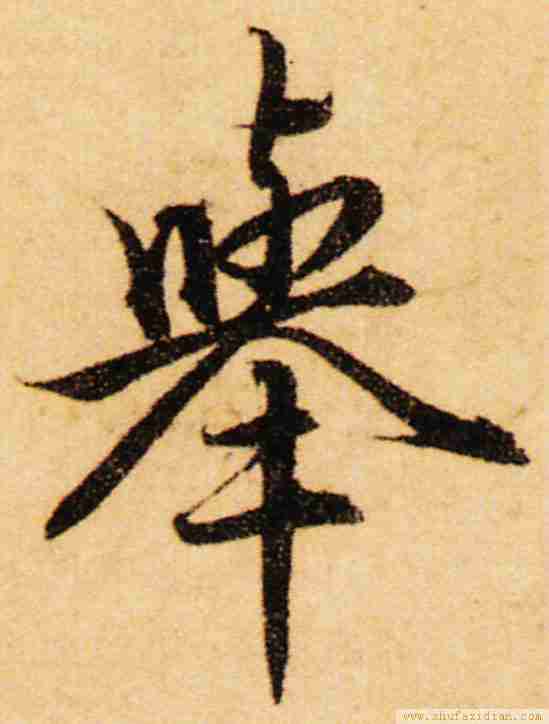 舉
www.shufazidian.com